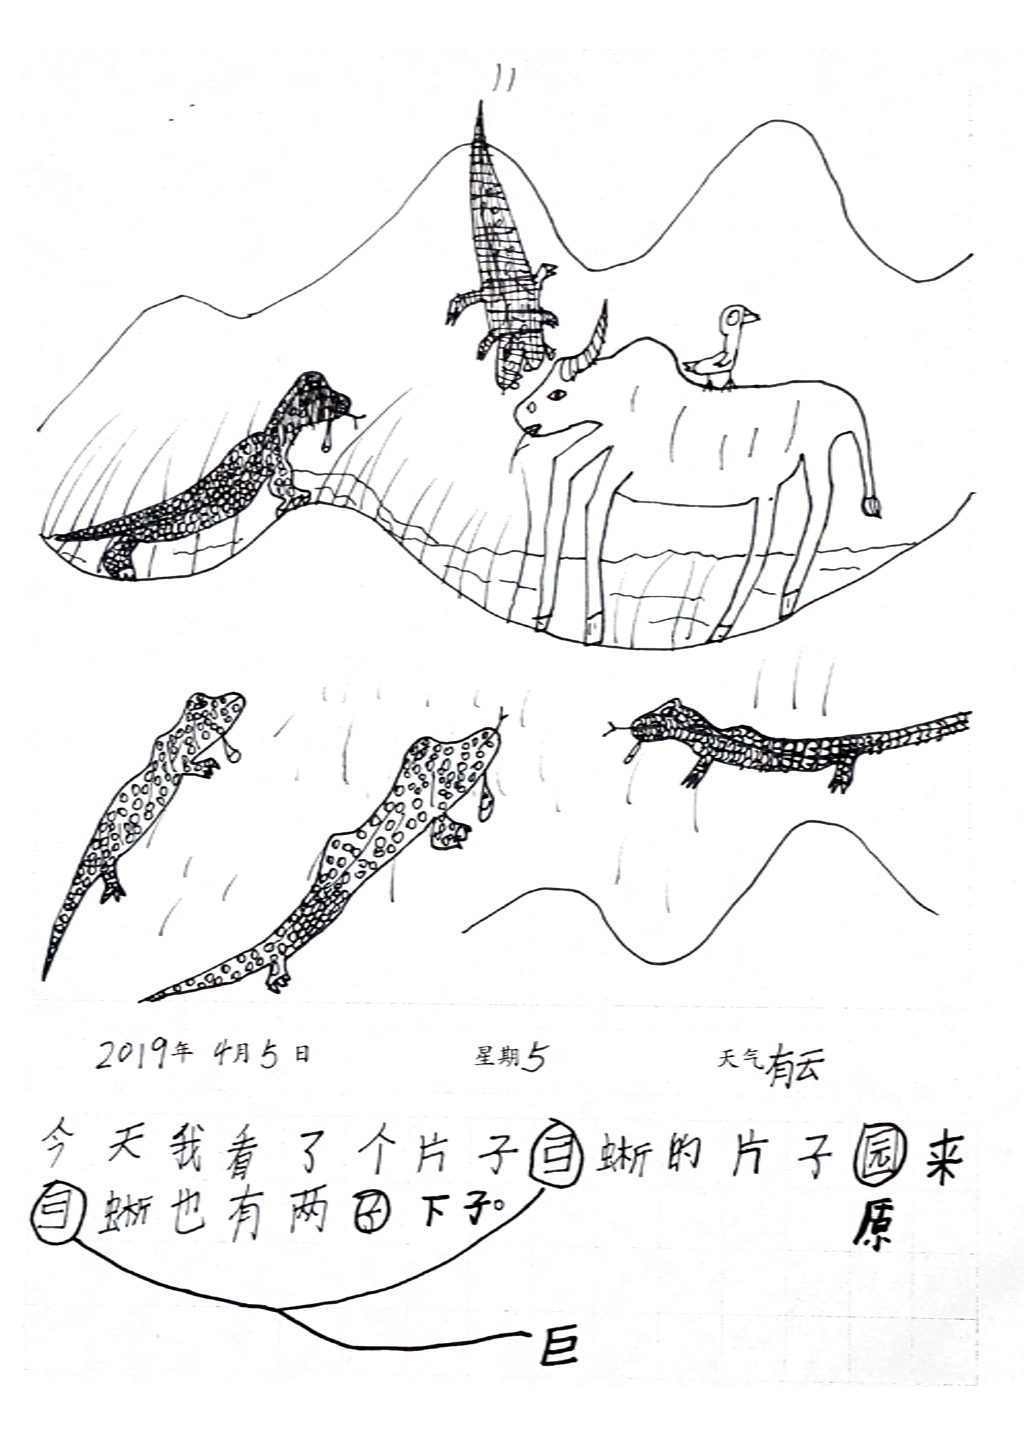 2019年 4月5日 星期5 天气有云
今天我看了个片子目蜥的片子园来
目蜥也有两下子。
原
巨